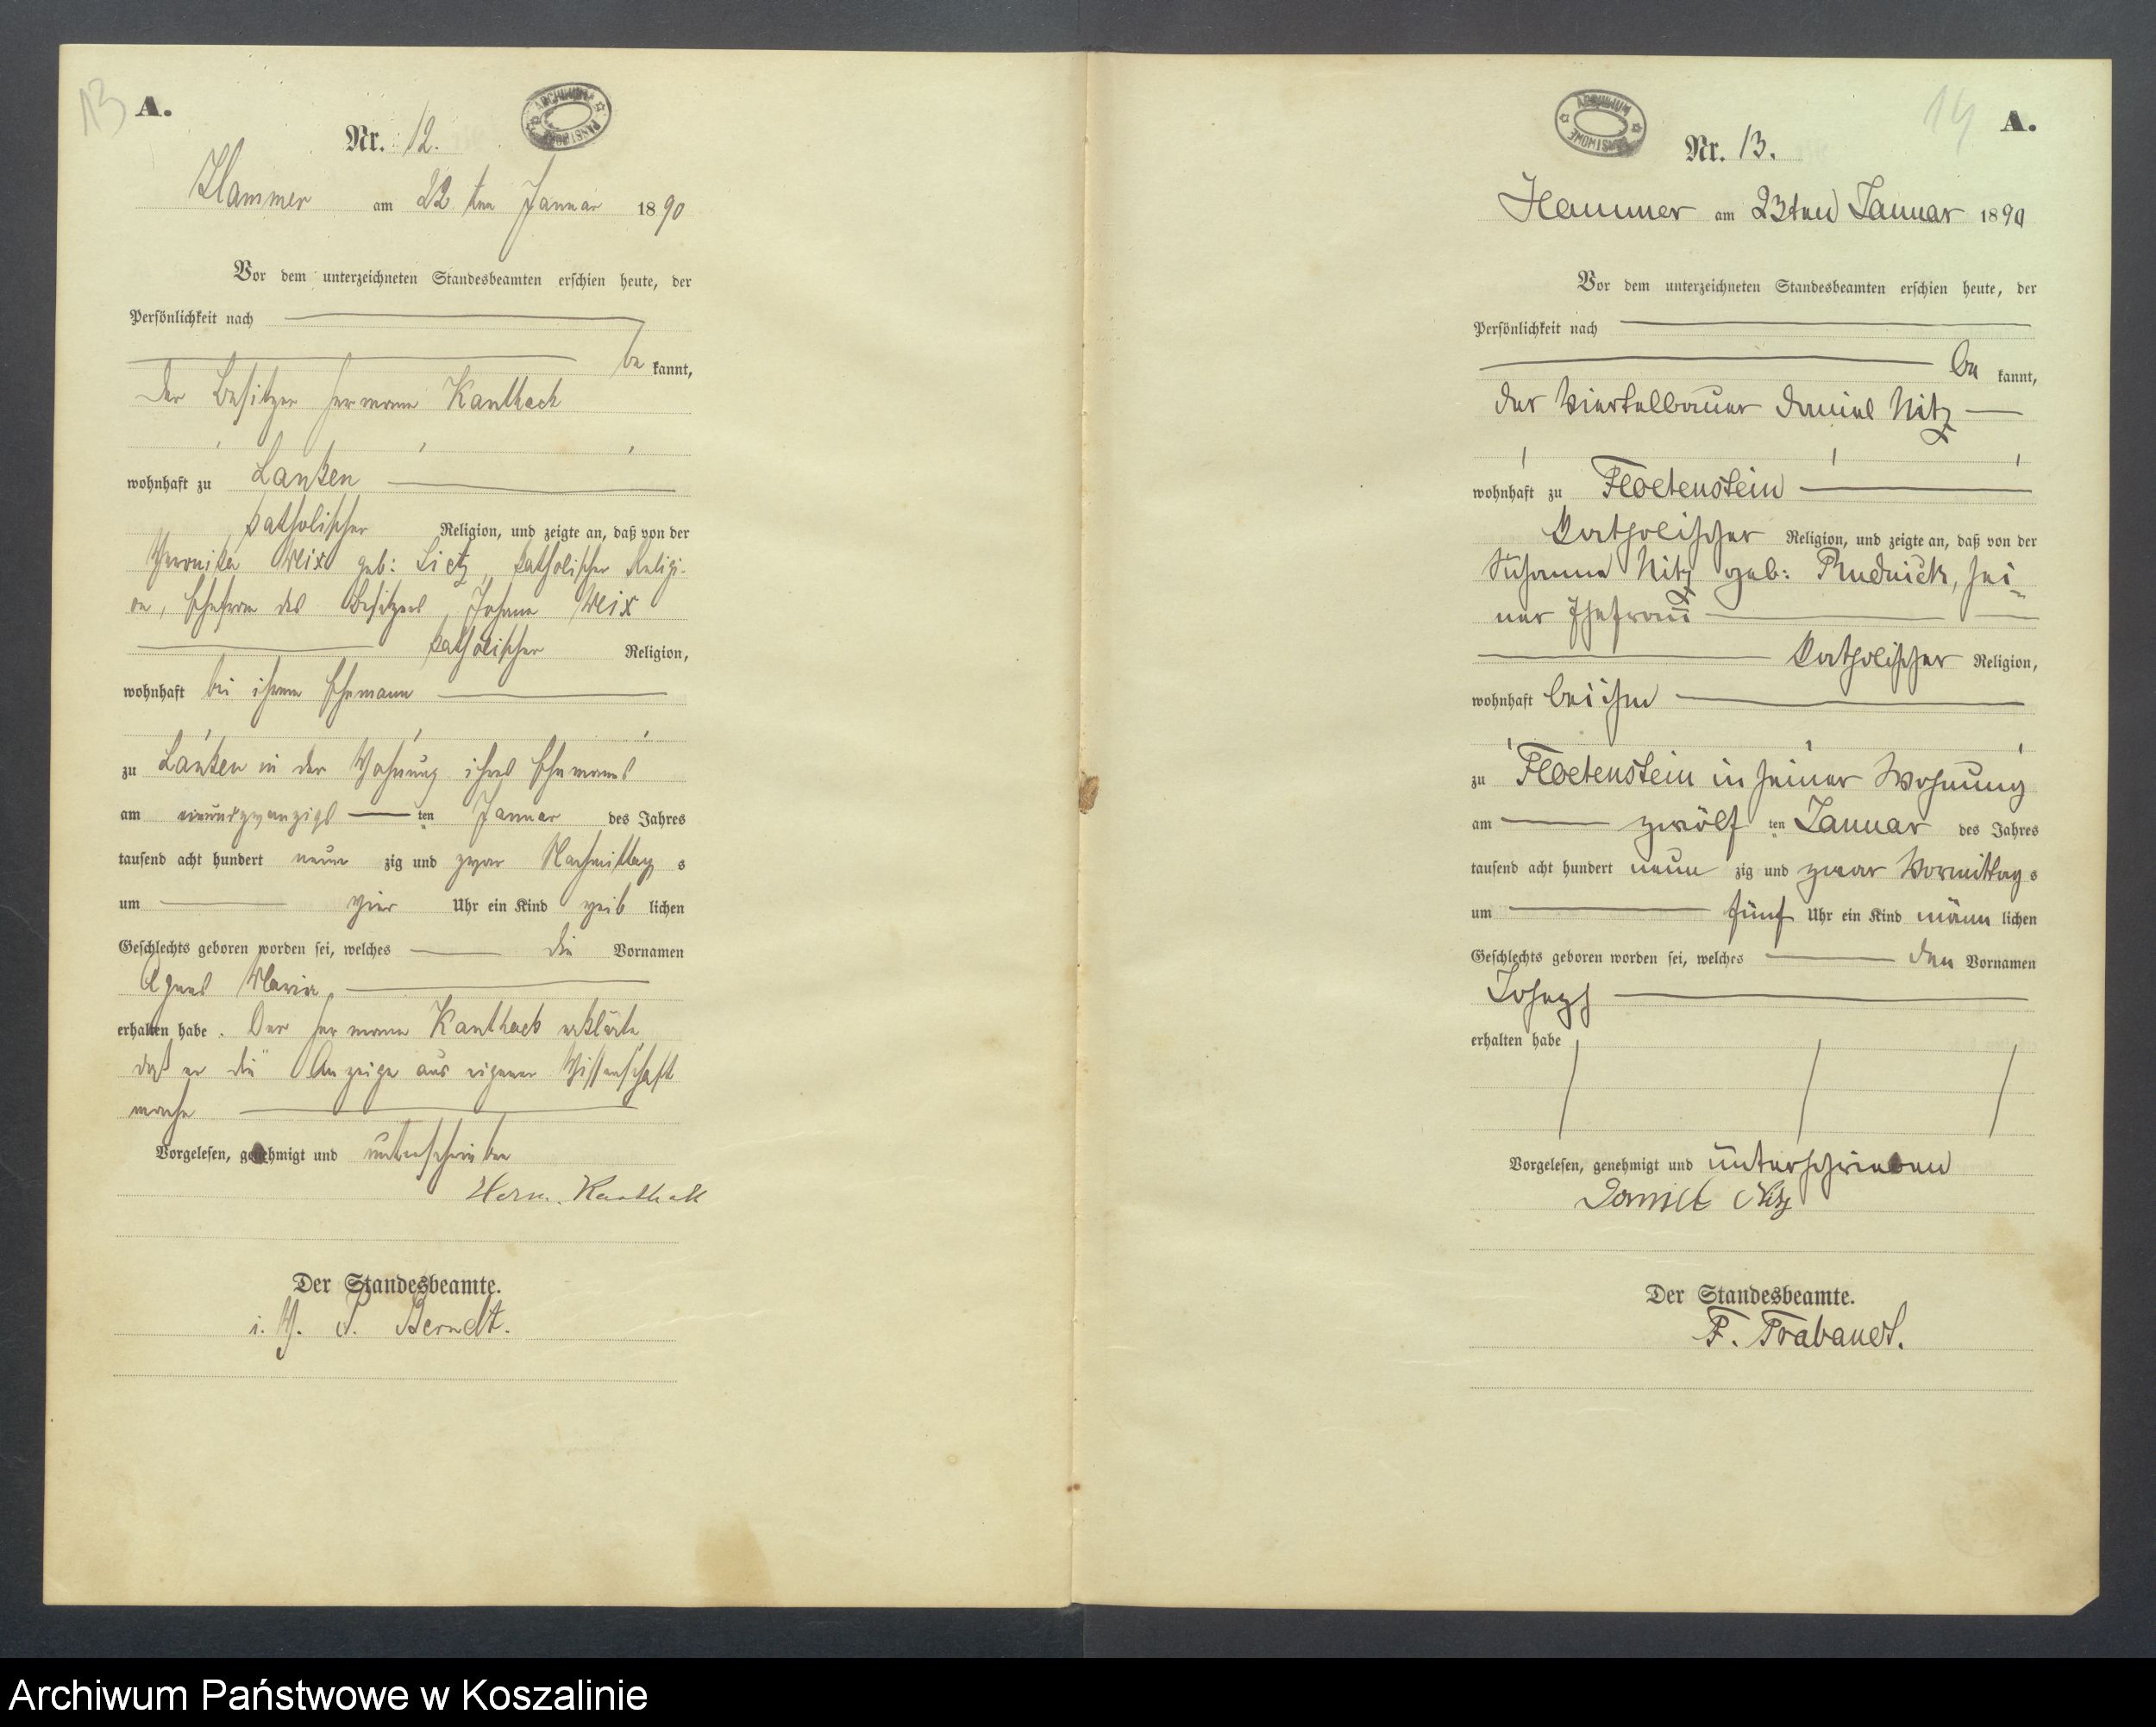 13
A.
ARCHIWUM PAŃSTWOWE
Nr. 12.
Hammer am 22 ten Januar 1890
Vor dem unterzeichneten Standesbeamten erschien heute, der
Persönlichkeit nach
be kannt,
der Besitzer Hermann Kanthack
wohnhaft zu Lanken
katholischer Religion, und zeigte an, daß von der
Veronika Weix geb: Lietz, katholischer Religi-
on, Ehefrau des Besitzers Johann Weix
katholischer Religion,
wohnhaft bei ihrem Ehemann
zu Lanken in der Wohnung ihres Ehemanns
am einundzwanzigs ten Januar des Jahres
tausend acht hundert neun zig und zwar Nachmittag s
um vier Uhr ein Kind weib lichen
Geschlechts geboren worden sei, welches die Vornamen
Agnes Maria
erhalten habe. Der Hermann Kanthack erklärte,
daß er die Anzeige aus eigener Wissenschaft
mache
Vorgelesen, genehmigt und unterschrieben
Herm. Kanthack
Der Standesbeamte.
i. V. J. Berndt.
14
A.
ARCHIWUM PAŃSTWOWE
Nr. 13.
Hammer am 23ten Januar 1890
Vor dem unterzeichneten Standesbeamten erschien heute, der
Persönlichkeit nach
be kannt,
der Viertelbauer Daniel Nitz
wohnhaft zu Floetenstein
katholischer Religion, und zeigte an, daß von der
Susanna Nitz geb: Rudnick, sei-
ner Ehefrau
katholischer Religion,
wohnhaft bei ihm
zu Floetenstein in seiner Wohnung
am zwölf ten Januar des Jahres
tausend acht hundert neun zig und zwar Vormittag s
um fünf Uhr ein Kind männ lichen
Geschlechts geboren worden sei, welches den Vornamen
Joseph
erhalten habe
Vorgelesen, genehmigt und unterschrieben
Daniel Nitz
Der Standesbeamte.
F. Trabandt.
Archiwum Państwowe w Koszalinie